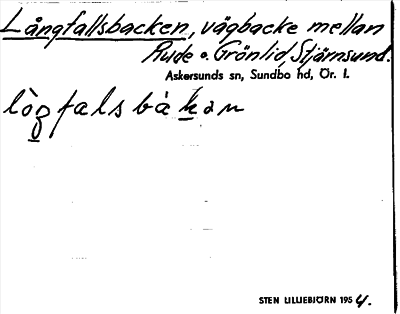 Långfallsbacken, vägbacke mellan
Rude o. Grönlid, Stjärnsund.
Askersunds sn, Sundbo hd, Ör. l.
lòŋfalsbàkan
STEN LILLIEBJÖRN 1954.